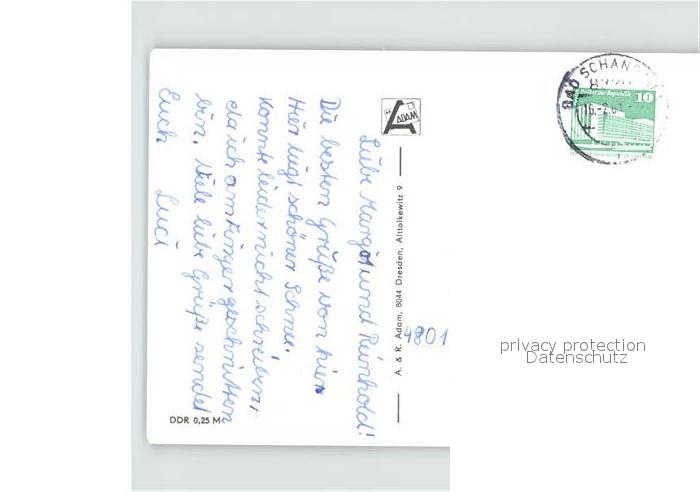 Liebe Margot und Reinhold!
Die besten Grüße von hier
Hier liegt schöner Schnee.
Konnte leider nicht schreiben,
da ich am Finger geschnitten
bin. Viele liebe Grüße sendet
Euch Luci
ADAM
A. & R. Adam, 8044 Dresden, Alttolkewitz 9
DDR 0,25 M
4801
BAD SCHAN
Palast der Republik
10
privacy protection
Datenschutz